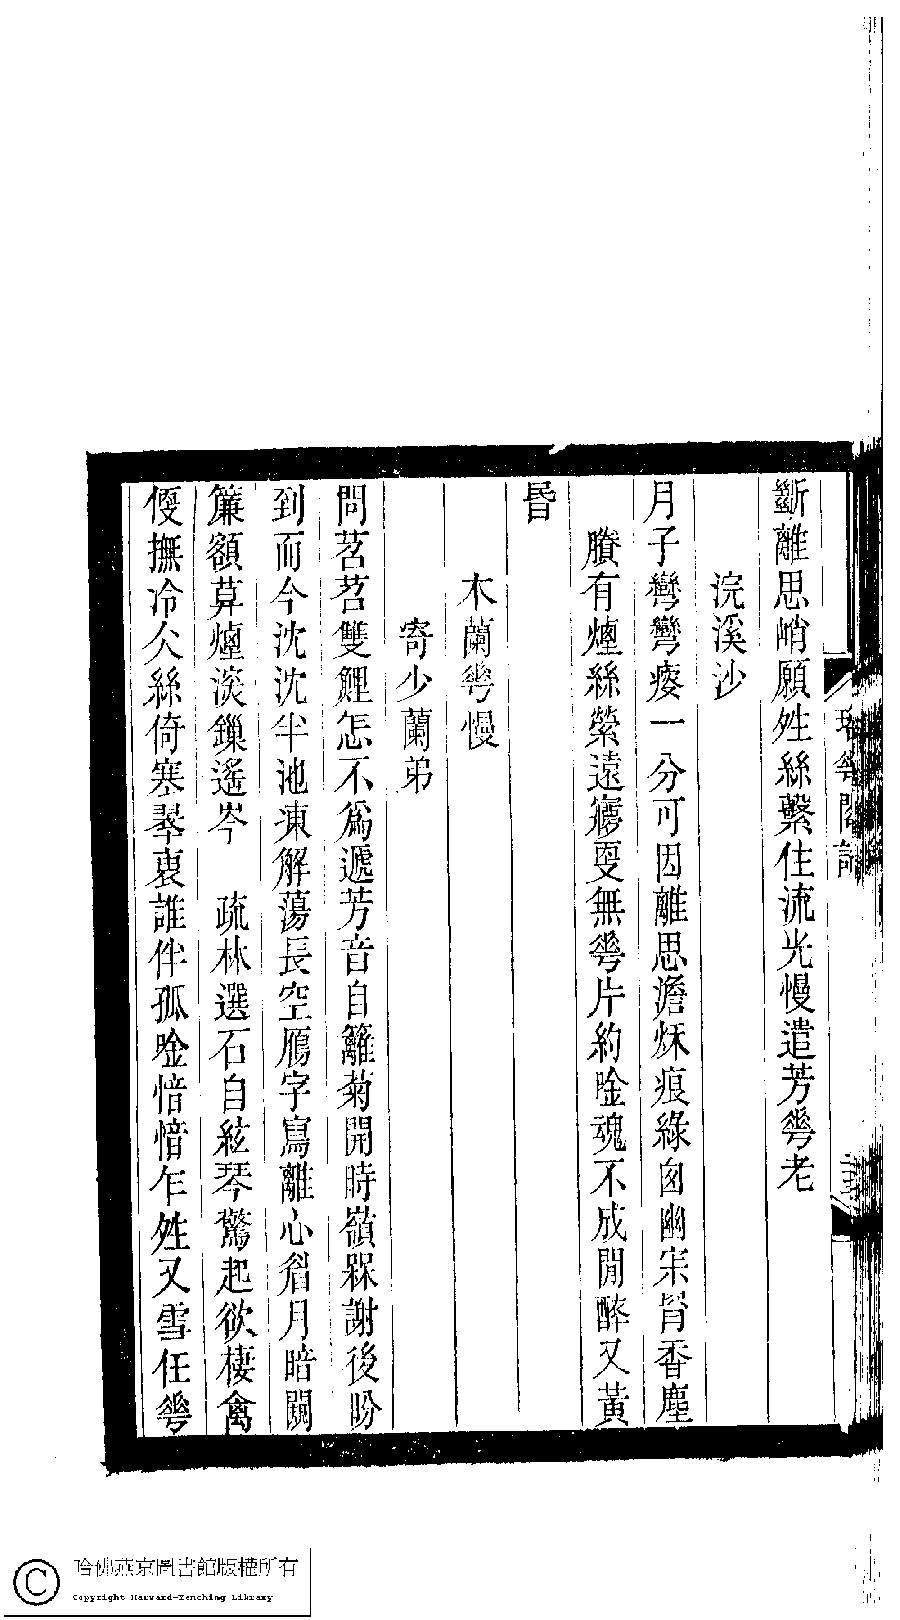 斷離思峭願姓絲繫住流光慢遣芳蕐老
浣溪沙
月子彎彎瘦一分可因離思澹秌痕綠囱幽宋胷香塵
賸有㷼絲縈遠㝱更無蕐片約唫魂不成閒醉又黃
昬
木蘭蕐慢
寄少蘭弟
問苕苕雙鯉怎不爲遞芳音自籬菊開時嶺槑謝後盼
到而今沈沈半池凍解蕩長空鴈字寫離心眉月暗闚
簾額算㷼淡鏁遙岑　疏林選石自絃琴驚起欲棲禽
便撫冷仌絲倚寒翠裏誰伴孤唫愔愔乍姓又雪任蕐
哈佛燕京圖書館版權所有
Copyright Harvard-Yenching Library